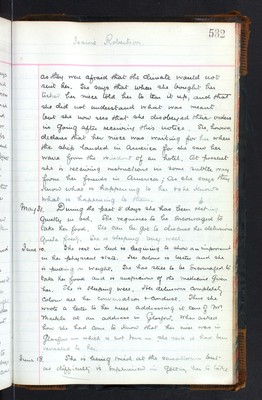 532
Isaac Robertson
as they was afraid that the climate would not
suit her. She says that when she bought her
ticket her niece told her to tear it up, and that
she did not understand what was meant
but she now sees that she disobeyed their orders
in going after receiving this notice. She, however,
declares that her niece was waiting for her when
the ship landed in America for she saw her
wave from the window of an hotel. At present
she is receiving instructions in some subtle way
from her friends in America, as she says they
know what is happening to her & she knows
what is happening to them.
May 31. During the past 5 days she has been resting
quietly in bed. She requires to be encouraged to
take her food. She can be got to discuss her delusions
quite freely. She is sleeping very well.
June 10. The rest in bed is beginning to show an improvement
in her physical state. Her colour is better and she
is gaining in weight. She has still to be encouraged to
take her food and is suspicious of the medicine given
her. She is sleeping more. Her delusions completely
colour all her conversation & conduct. Thus she
wrote a letter to her niece addressing it care of Mr
at an address in Glasgow. When asked
how she had come to know that her niece was in
Glasgow
remarks to her.
June 18. She is being tried at the but
as difficulty is experienced in getting her to take